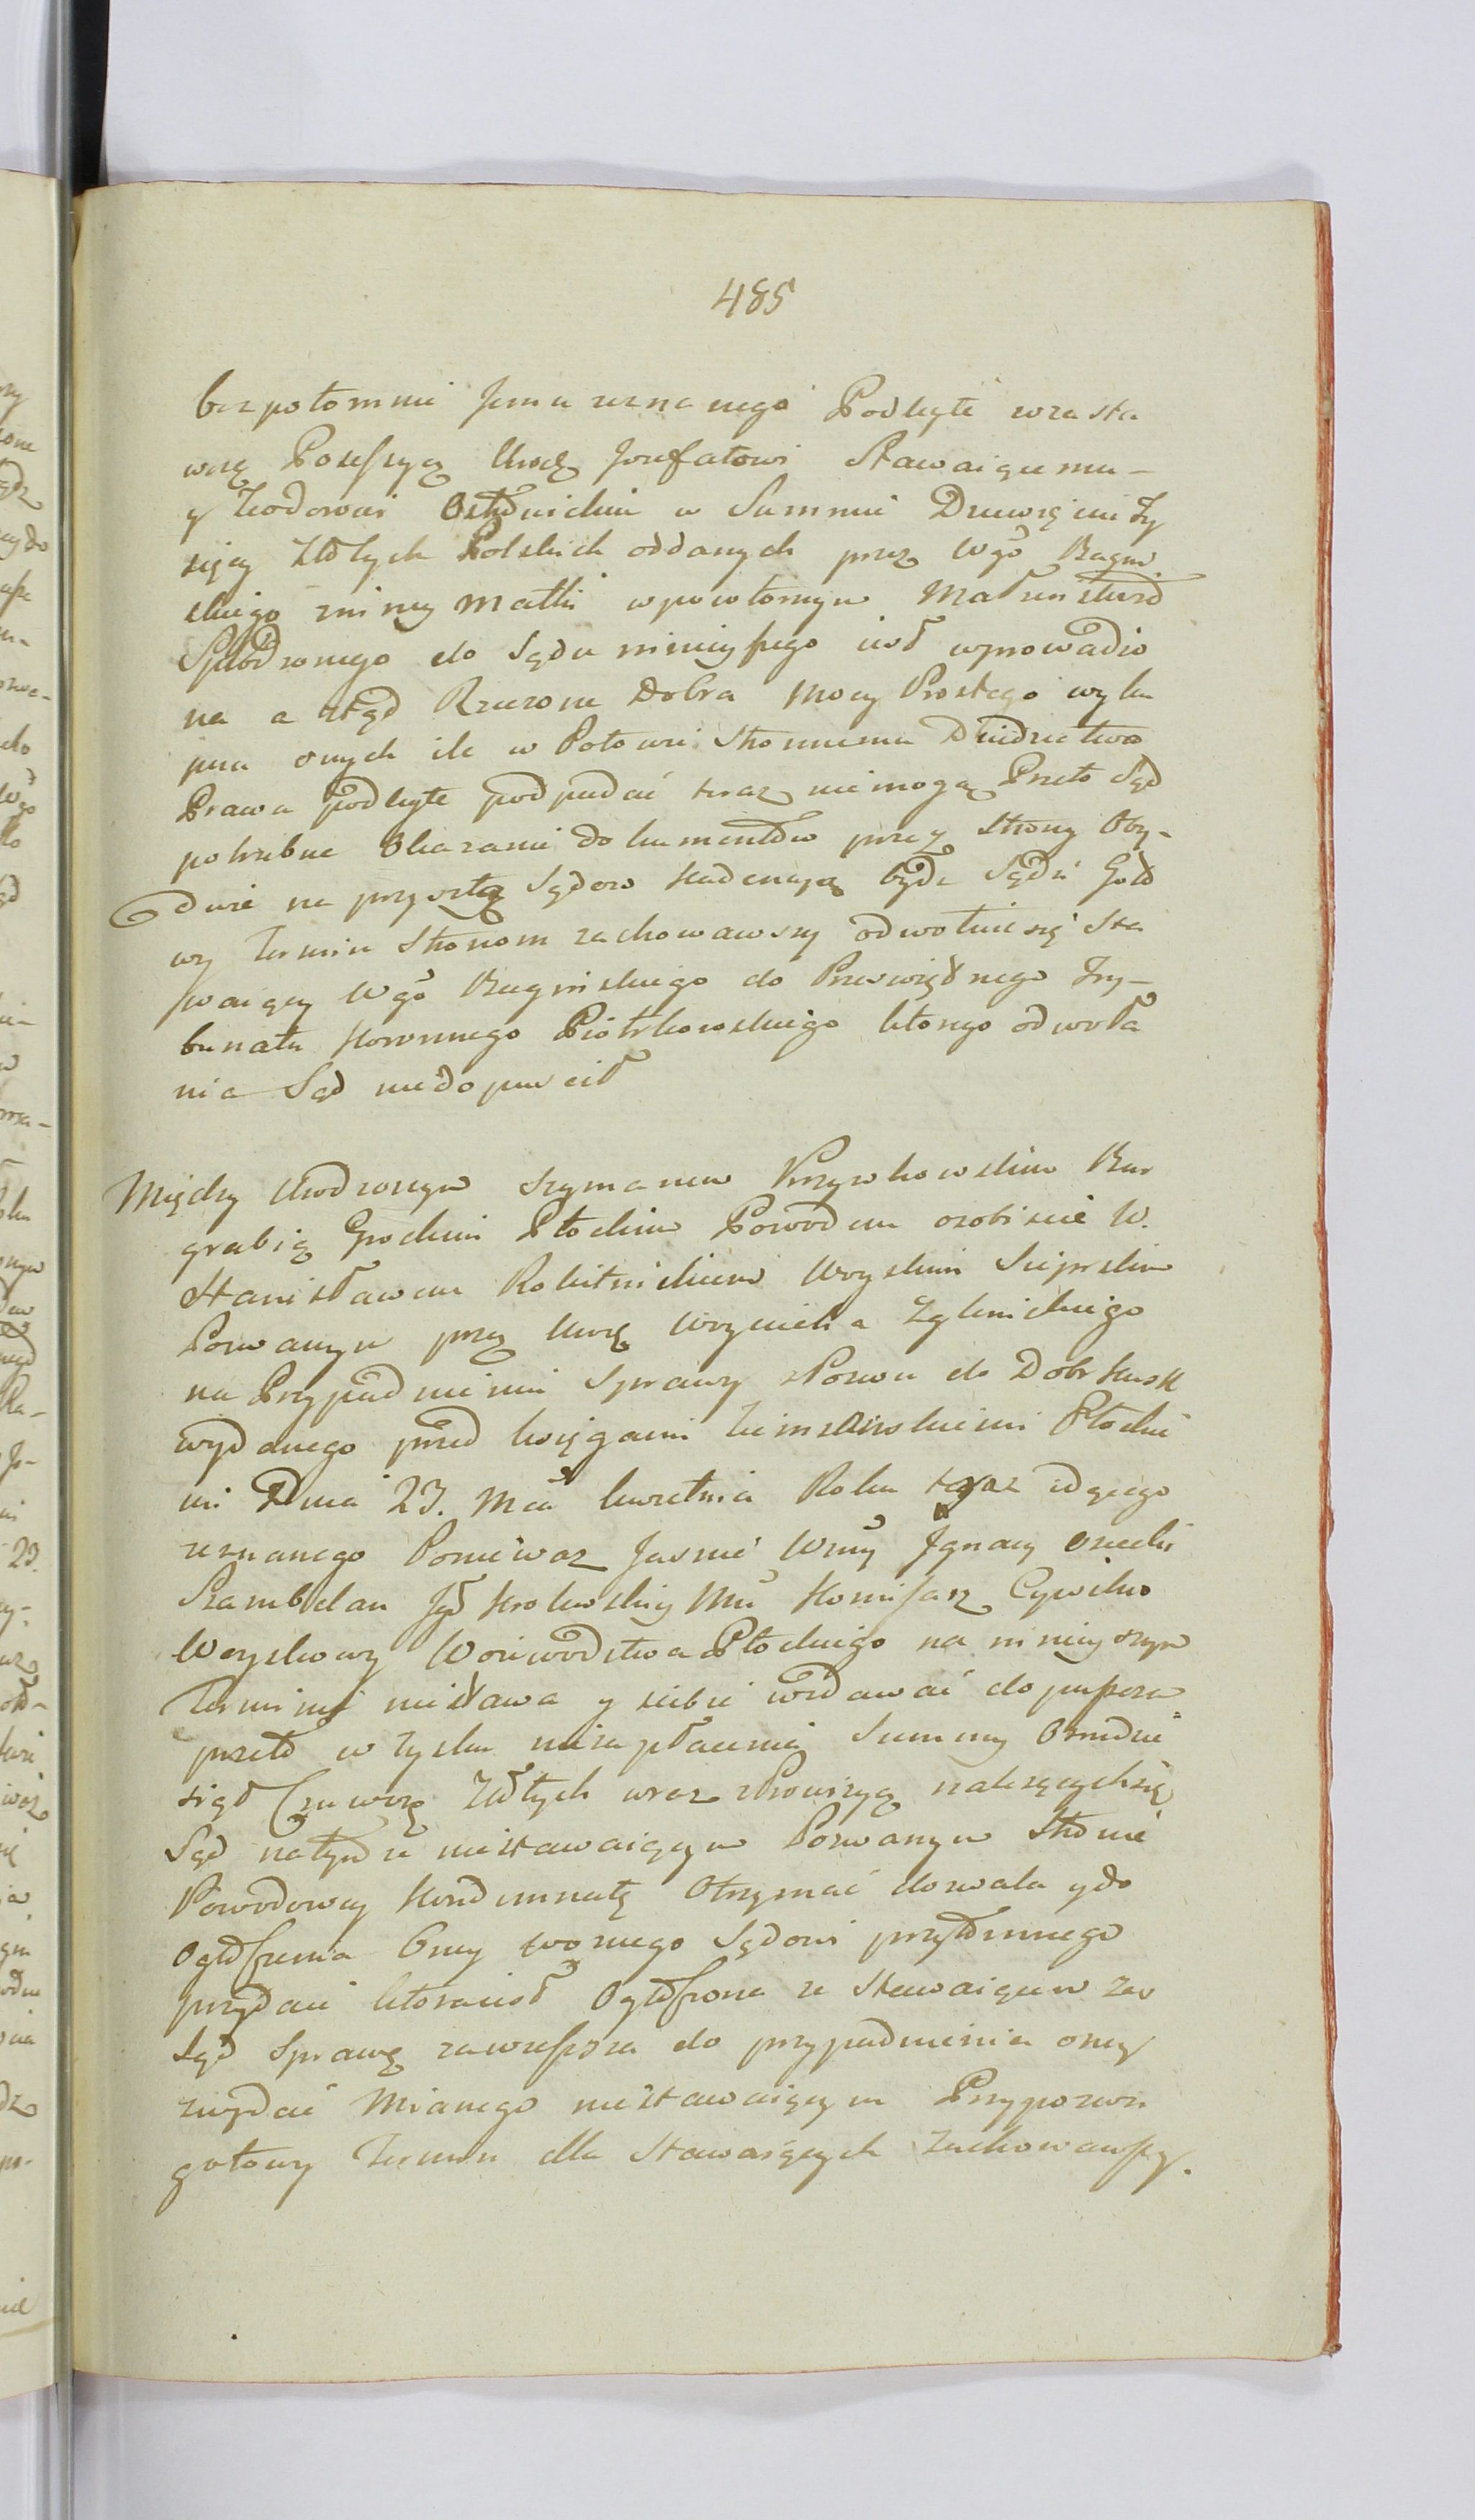 485
bezpotomnie Jemu zeznanego Podległe w zasta
wną Possessyą Urodz Jozefatowi Stawaiącemu –
y Teodorowi Ostrowickim w Summie Dziewięciu Ty
sięcy Złłtych Polskich oddanych przez Wgo Bagin
skiego z inney Matki w powtornym Małżenstwie
Spłodzonego do Sądu ninieyszego iest wprowadzo
na a ztąd Rzeczone Dobra Mocy Prostego wyku
pna onych ile w Połowie Stronnemu Dziedzictwa
Prawu podległe podpadać teraz niemogą Przeto Sąd
potrzebne Okazanie dokumentow przez Strony Oby-
dwie na przyszłą Sądow kadencyą będzie Sądzić Goto
wy Termin Stronom zachowawszy odwołuie się Sta
waiący Wgo Baginskiego do Prześwietnego Try-
bunału Koronnego Piotrkowskiego ktorego odwoła
nia Sąd niedopuscił
Między Urodzonym Szymonem Przyrkowskim Bur
grabią Grodzkim Płockim Powodem osobiscie W.
Stanisławem Rokitnickim Woyskim Sierpskim
Pozwanym przez Urodz Woyciecha Zglenickiego
na Przypadnienie Sprawy z Pozwu do Dobr Kuski
wydanego przed księgami Ziemiańskiemi Płockie
mi Dnia 23. Mca kwietnia Roku teraz idącego
zeznanego Ponieważ Jasnie Wny Ignacy Osiecki
Szambelan Jgo Krolewskiey Mci Kommissarz Cywilno
Woyskowy Woiewodztwa Płockiego na ninieyszym
Terminie niestawa y siebie wzdawać dopuszcza
przeto w zysku niezapłacenia Summy Ośmdzie
siąt Czerwony Złłtych wraz z Prowizyą należących się
Sąd natymże niestawaiącym Pozwanym Stronie
Powodowey Kondemnatę Otrzymać dozwala y do
Ogłoszenia Oney woznego Sądowi przytomnego
przydaie ktora iest Ogłoszona ze Stawaiącem zas
Sąd Sprawę zawiesza do przypadnienia oney
zwydać Mianego niestawaiącym Przypozwu
gotowy Termin dla Stawaiących zachowawszy.